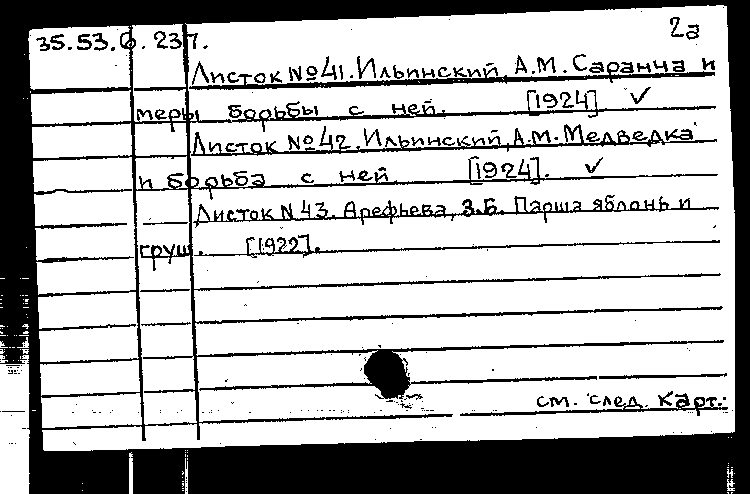 2а
35.53.6.237.
Листок №41. Ильинский, А.М. Саранча и
меры борьбы с ней. [1924] ✓
Листок №42. Ильинский, А.М. Медведка
и борьба с ней [1924]. ✓
Листок N 43. Арефьева, З.Б. Парша яблонь и
груш. [1922].
см. след. карт.